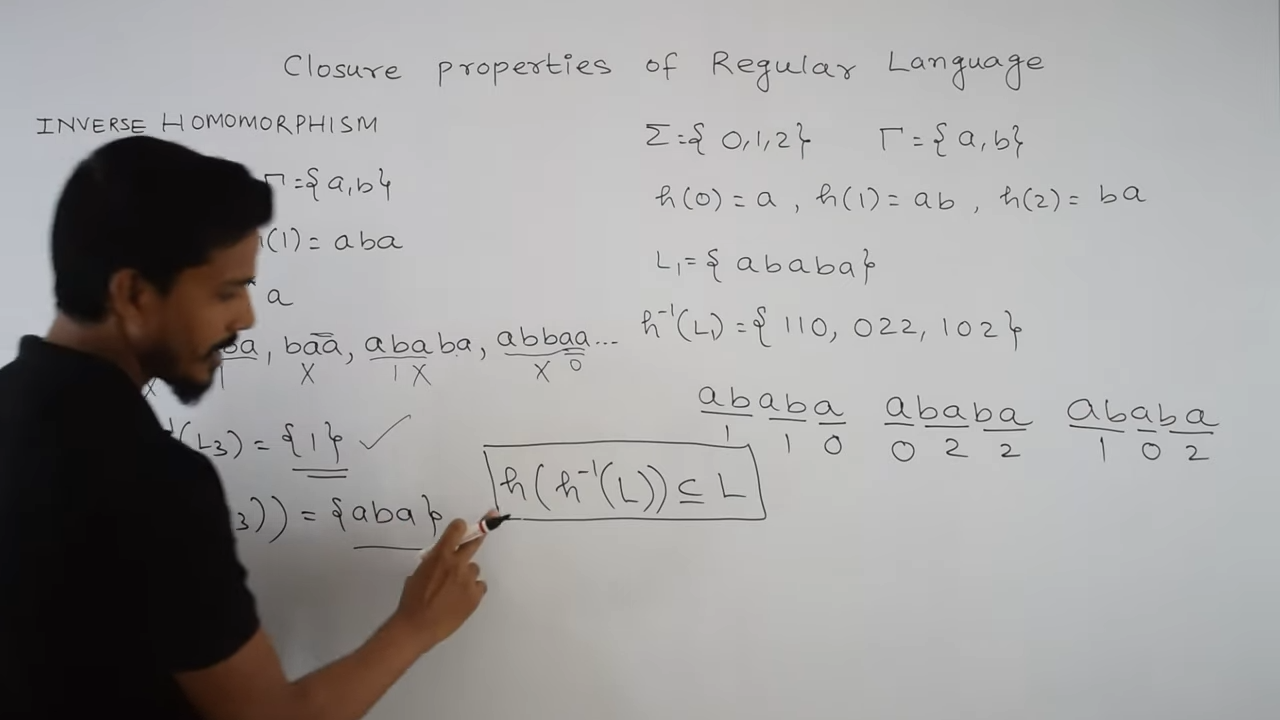 Closure properties of Regular Language
INVERSE HOMOMORPHISM
Γ={a,b}
h(1) = aba
a
ba, baa, ababa, abbaa...
1 X 1 X X 0
(L₃) = {1} ✓
₃)) = {aba}
h(h⁻¹(L)) ⊆ L
Σ={0,1,2} Γ={a,b}
h(0) = a , h(1) = ab , h(2) = ba
L₁={ababa}
h⁻¹(L₁) = {110, 022, 102}
ababa ababa ababa
1 1 0 0 2 2 1 0 2